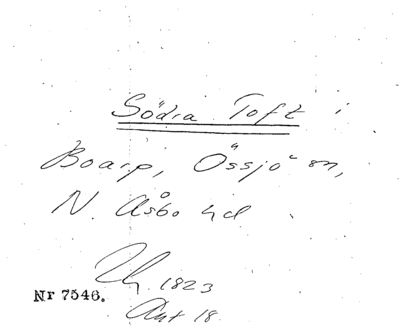 Södra Toft i
Boarp, Össjö sn,
N. Åsbo hd.
1823
Nr 7546.
Akt 18